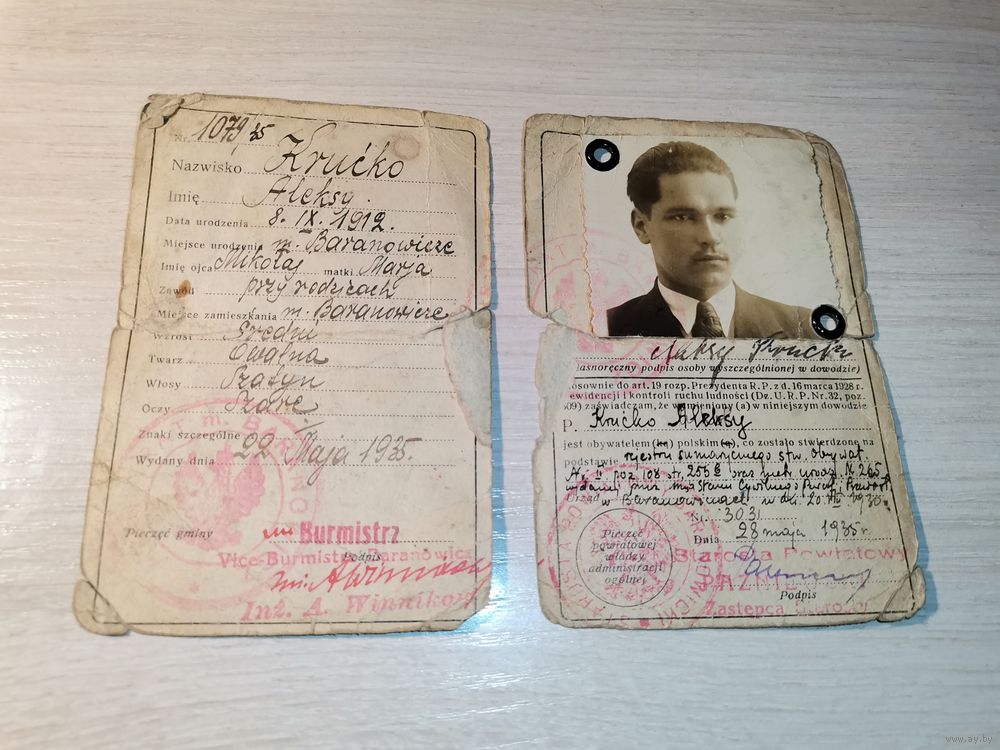 Nr. 1079/35
Nazwisko Krućko
Imię Aleksy.
Data urodzenia 8. IX. 1912.
Miejsce urodzenia m. Baranowicze
Imię ojca Mikołaj matki Marja
Zawód przy rodzicach
Miejsce zamieszkania m. Baranowicze
Wzrost Średni
Twarz Owalna
Włosy Szatyn
Oczy Szare
Znaki szczególne
Wydany dnia 22 Maja 1935.
Pieczęć gminy
Burmistrz
Vice-Burmistrz Baranowicz
Podpis
Inż. A. Winnikow
Aleksy Krućko
własnoręczny podpis osoby wyszczególnionej w dowodzie)
Stosownie do art. 19 rozp. Prezydenta R. P. z d. 16 marca 1928 r.
ewidencji i kontroli ruchu ludności (Dz. U. R. P. Nr. 32, poz.
309) zaświadczam, że wymieniony (a) w niniejszym dowodzie
P. Krućko Aleksy
jest obywatelem (ką) polskim (ą), co zostało stwierdzone na
podstawie rejestru sumarycznego stw. obywat.
poz 108 str. 256
Urząd w Baranowiczach w dn. 20
Nr. 3031
Dnia 28 maja 1935 r.
Pieczęć
powiatowej
władzy
administracji
ogólnej
Starosta Powiatowy
Podpis
Zastępca Starosty
www.ay.by